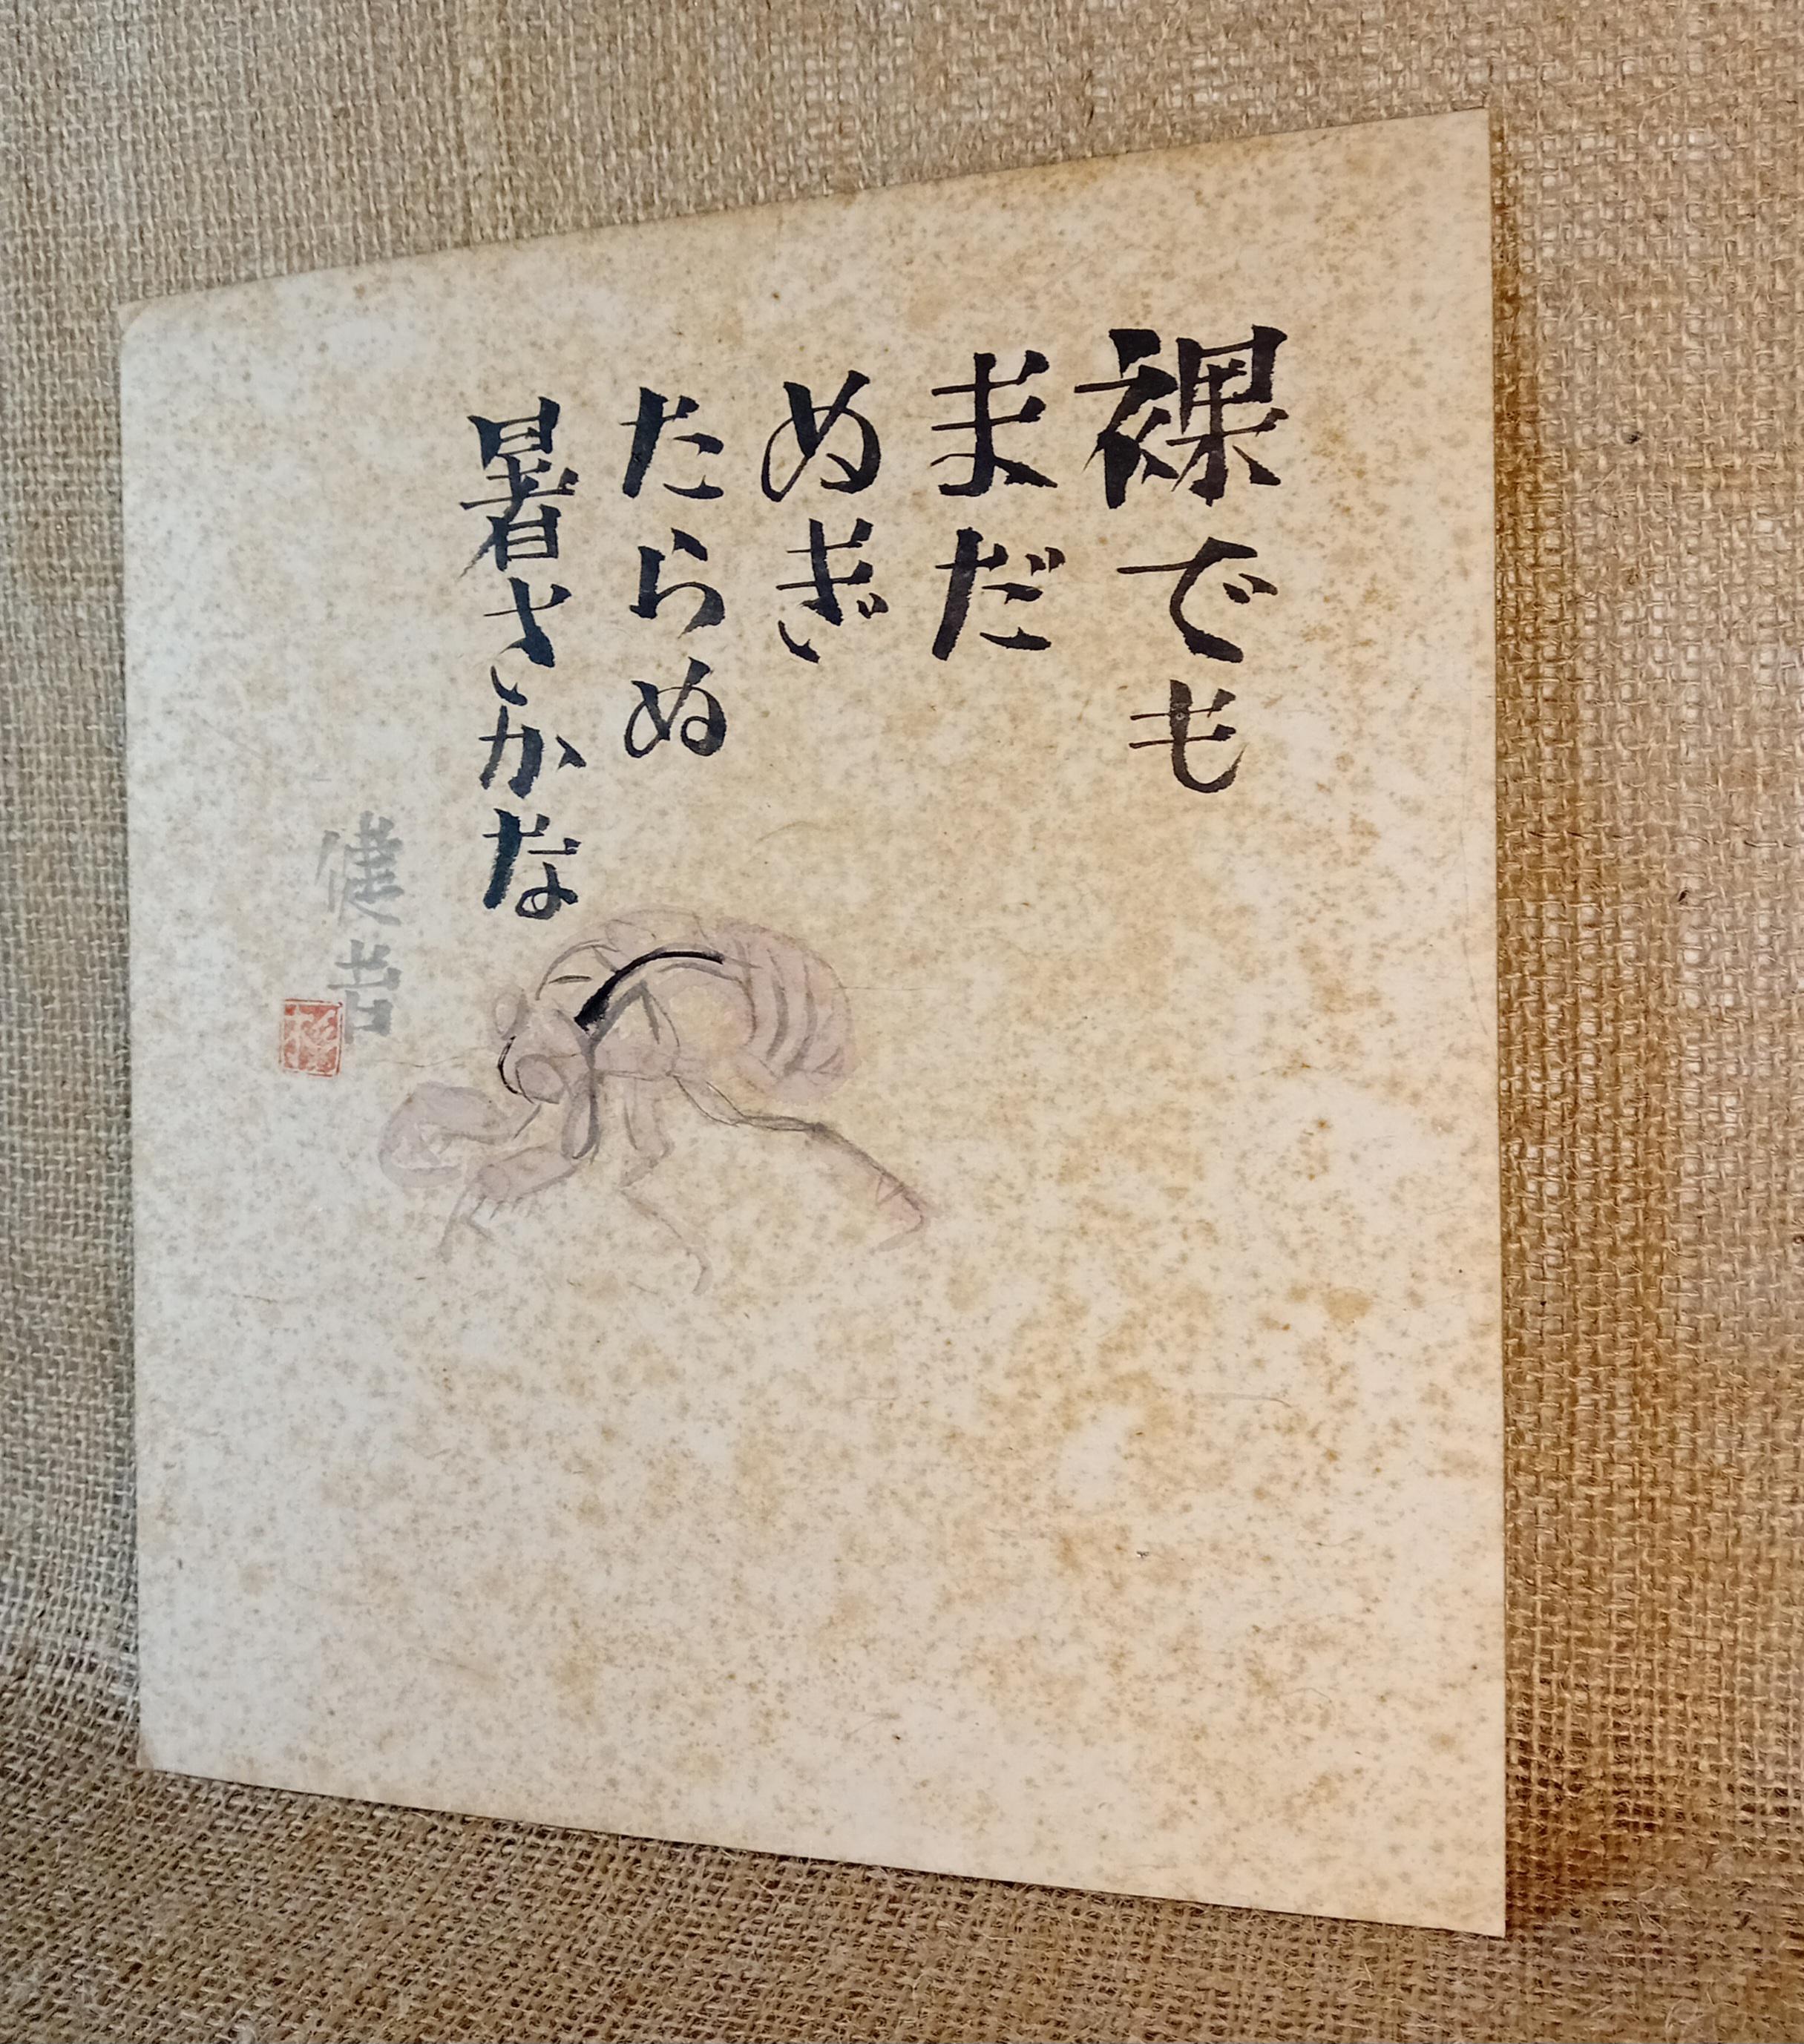 裸でも
まだ
ぬぎ
たらぬ
暑さかな
健岩
杉